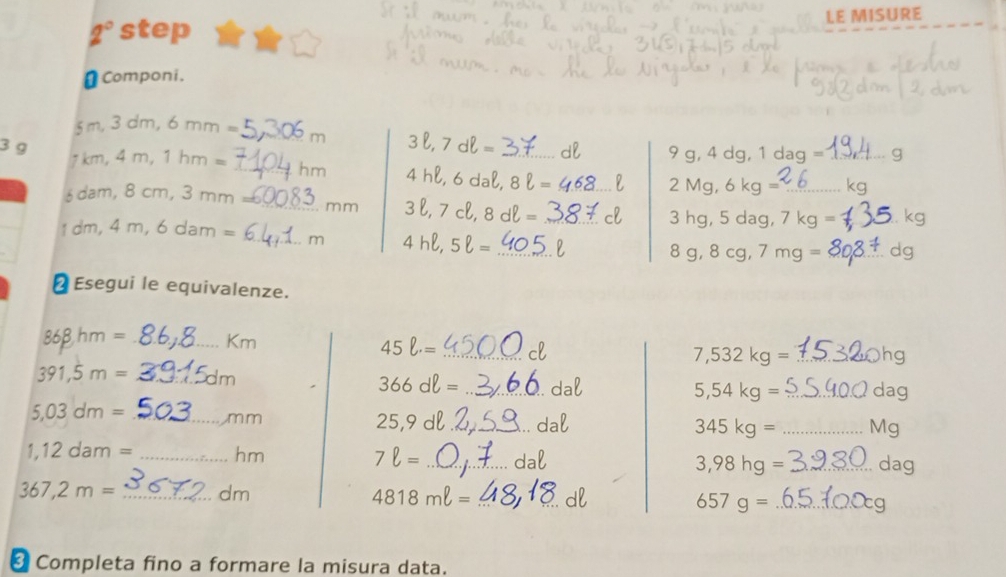 LE MISURE
2° step
1 Componi.
3 g
5 m, 3 dm, 6 mm = 5,306 m
7 km, 4 m, 1 hm = 71,04 hm
6 dam, 8 cm, 3 mm = 60083 mm
1 dm, 4 m, 6 dam = 64,1 m
3 ℓ, 7 dℓ = 37 dℓ
4 hℓ, 6 daℓ, 8 ℓ = 468 ℓ
3 ℓ, 7 cℓ, 8 dℓ = 387 cℓ
4 hℓ, 5 ℓ = 405 ℓ
9 g, 4 dg, 1 dag = 19,4 g
2 Mg, 6 kg = 26 kg
3 hg, 5 dag, 7 kg = 7,35 kg
8 g, 8 cg, 7 mg = 80,87 dg
2 Esegui le equivalenze.
868 hm = 86,8 Km
391,5 m = 3915 dm
5,03 dm = 503 mm
1,12 dam = hm
367,2 m = 3672 dm
45 ℓ = 4500 cℓ
366 dℓ = 3,66 daℓ
25,9 dℓ 2,59 daℓ
7 ℓ = 0,7 daℓ
4818 mℓ = 48,18 dℓ
7,532 kg = 75320 hg
5,54 kg = 55400 dag
345 kg = Mg
3,98 hg = 3980 dag
657 g = 65700 cg
3 Completa fino a formare la misura data.